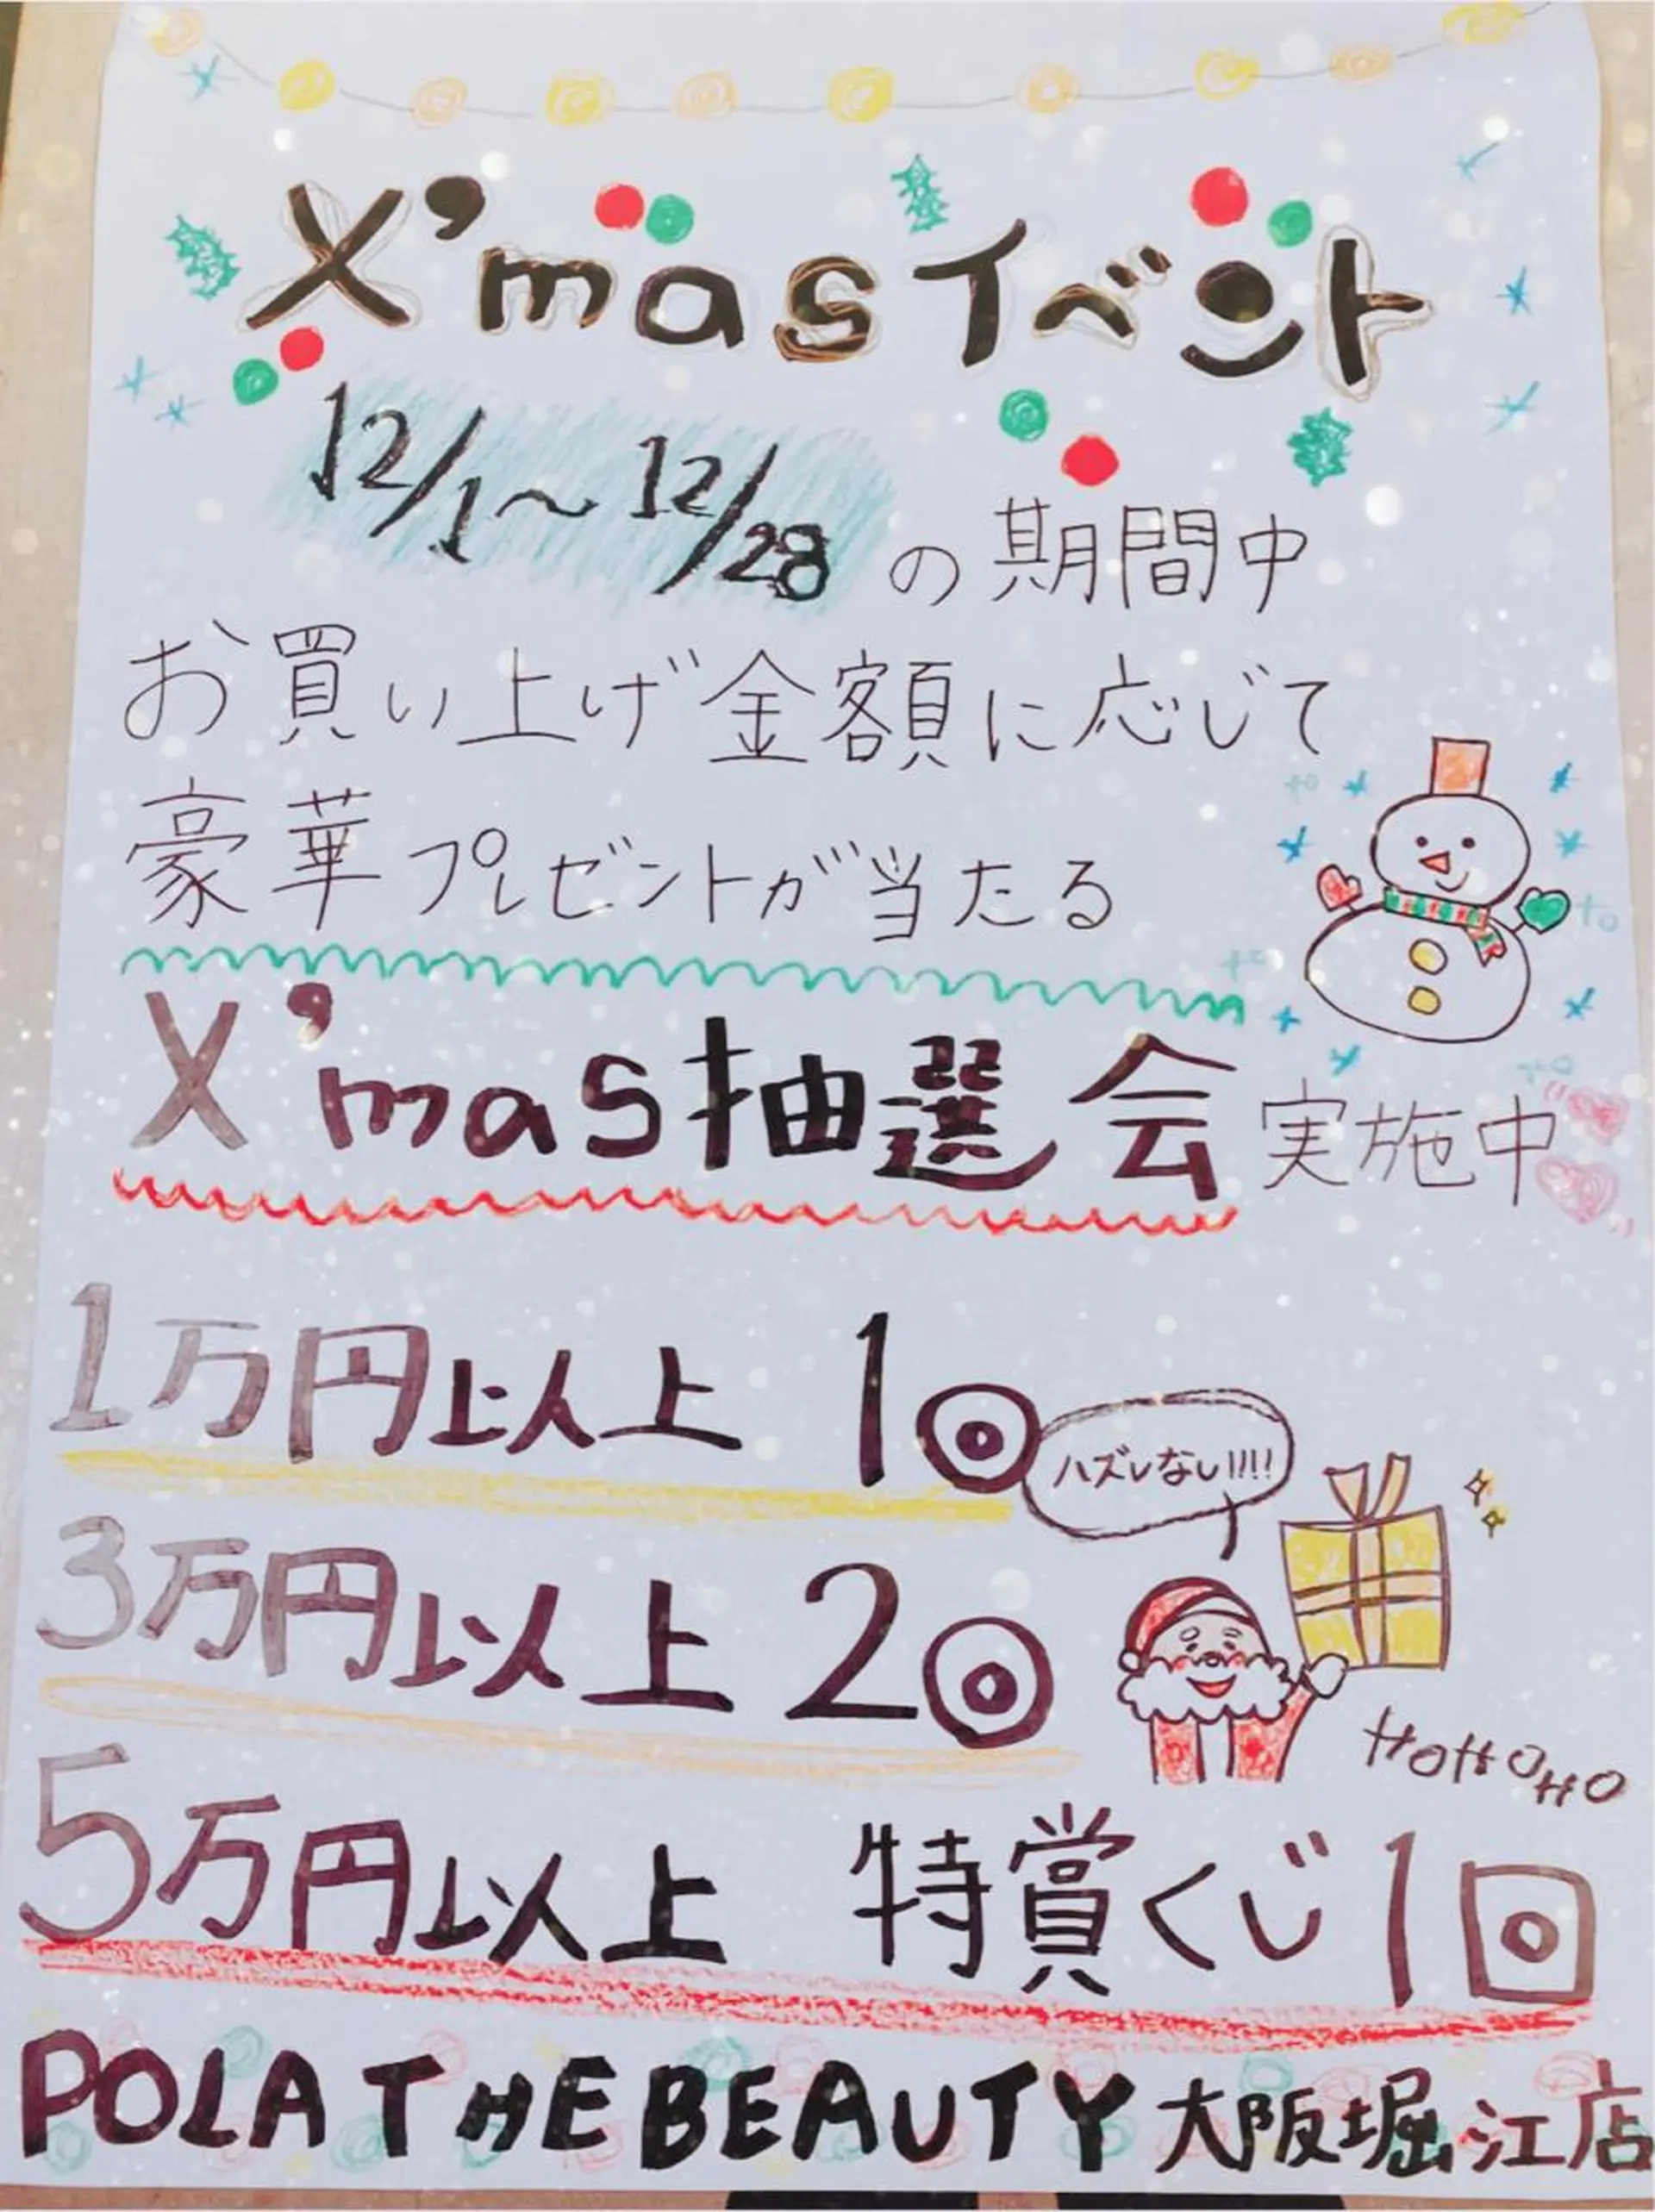 X'masイベント
12/1～12/28の期間中
お買い上げ金額に応じて
豪華プレゼントが当たる
X'mas抽選会実施中
1万円以上 1回
ハズレなし!!!!
3万円以上 2回
HOHOHO
5万円以上 特賞くじ1回
POLA THE BEAUTY 大阪堀江店